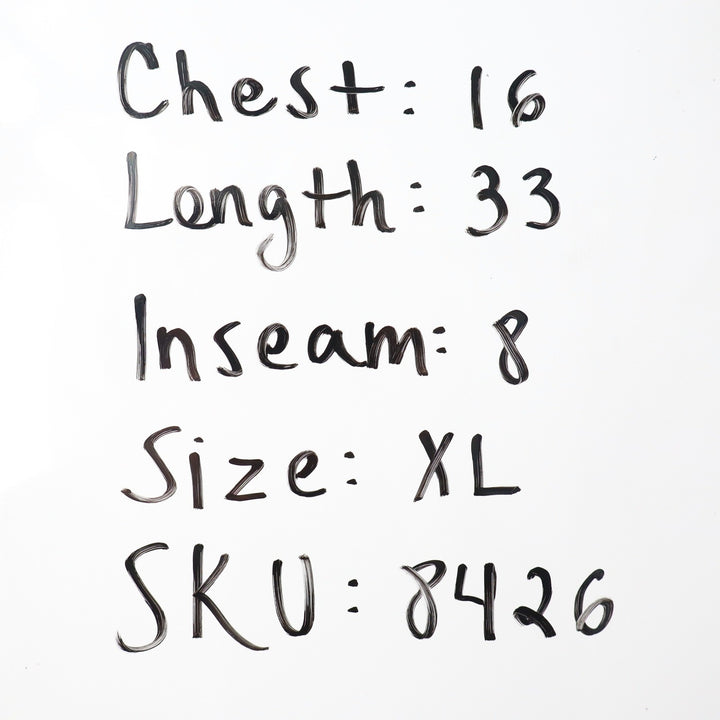 Chest: 16
Length: 33
Inseam: 8
Size: XL
SKU: 8426